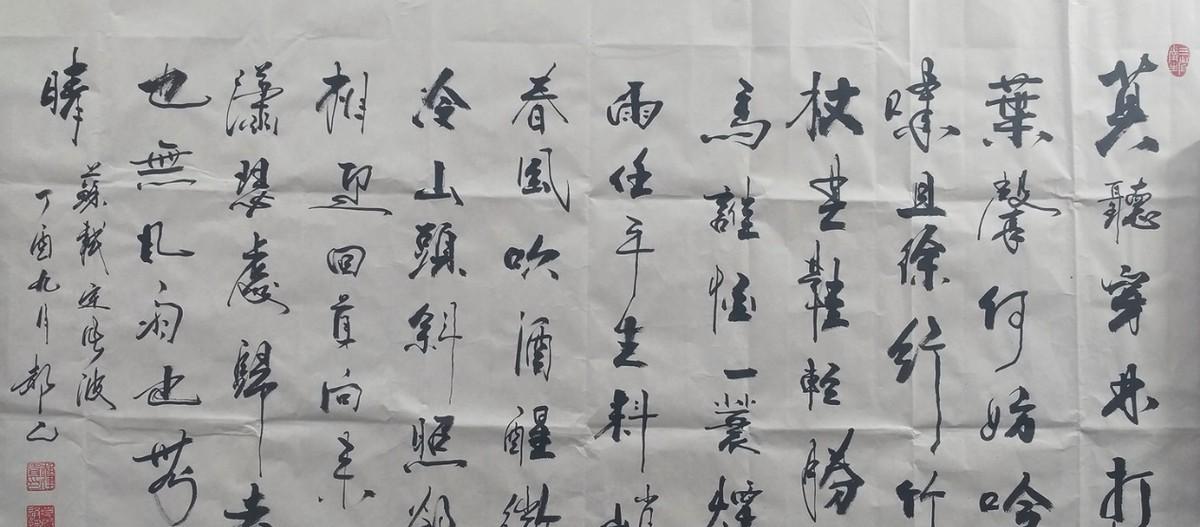 莫聽穿林打
葉聲何妨吟
嘯且徐行竹
杖芒鞋輕勝
馬誰怕一蓑煙
雨任平生料峭
春風吹酒醒微
冷山頭斜照卻
相迎回首向来
瀟瑟處歸去
也無風雨也無
晴
蘇軾定風波
丁酉九月